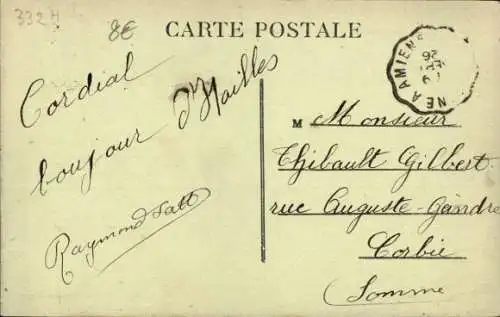 332H
8€
CARTE POSTALE
Cordial
bonjour
Mailles
Raymond
NE A AMIENS
26
M Monsieur
Thibault Gilbert
rue Auguste-Gindre
Corbie
Somme